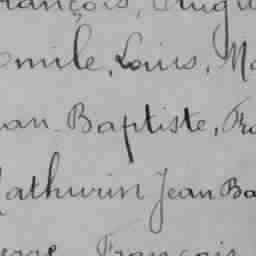 rançois, Augu
mile, Louis, Ma
an Baptiste, Fra
athurin Jean Ba
erre François